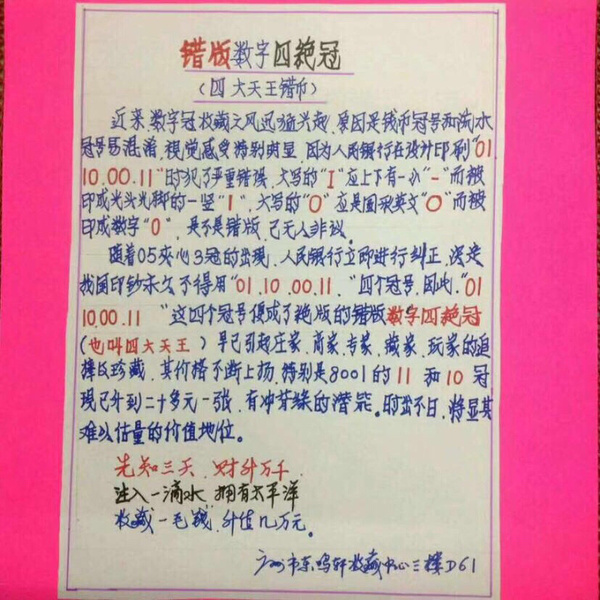 错版数字四绝冠
(四大天王错币)
近来数字冠收藏之风迅猛兴起,原因是钱币冠号和流水
冠号易混淆,视觉感受特别明显,因为人民银行在设计印刷"01
10.00.11"时犯了严重错误,大写的"I"应上下有一小"-"而被
印成光头光脚的一竖"1",大写的"O"应是圆种英文"O"而被
印成数字"0",是不是错版,已无人非议。
随着05夹心3冠的出现,人民银行立即进行纠正,决定
我国印钞永久不得用"01.10.00.11."四个冠号,因此,"01
10.00.11"这四个冠号便成了绝版的错版数字四绝冠
(也叫四大天王)早已引起庄家、商家、专家、藏家、玩家的追
捧及珍藏,其价格不断上扬,特别是8001的11和10冠
现已升到二十多元一张,有冲芽绿的潜能。时空不日,将显其
难以估量的价值地位。
先知三天,财升万千
注入一滴水,拥有太平洋
收藏一毛钱,升值几万元。
广州市东鸣轩收藏中心三楼D61